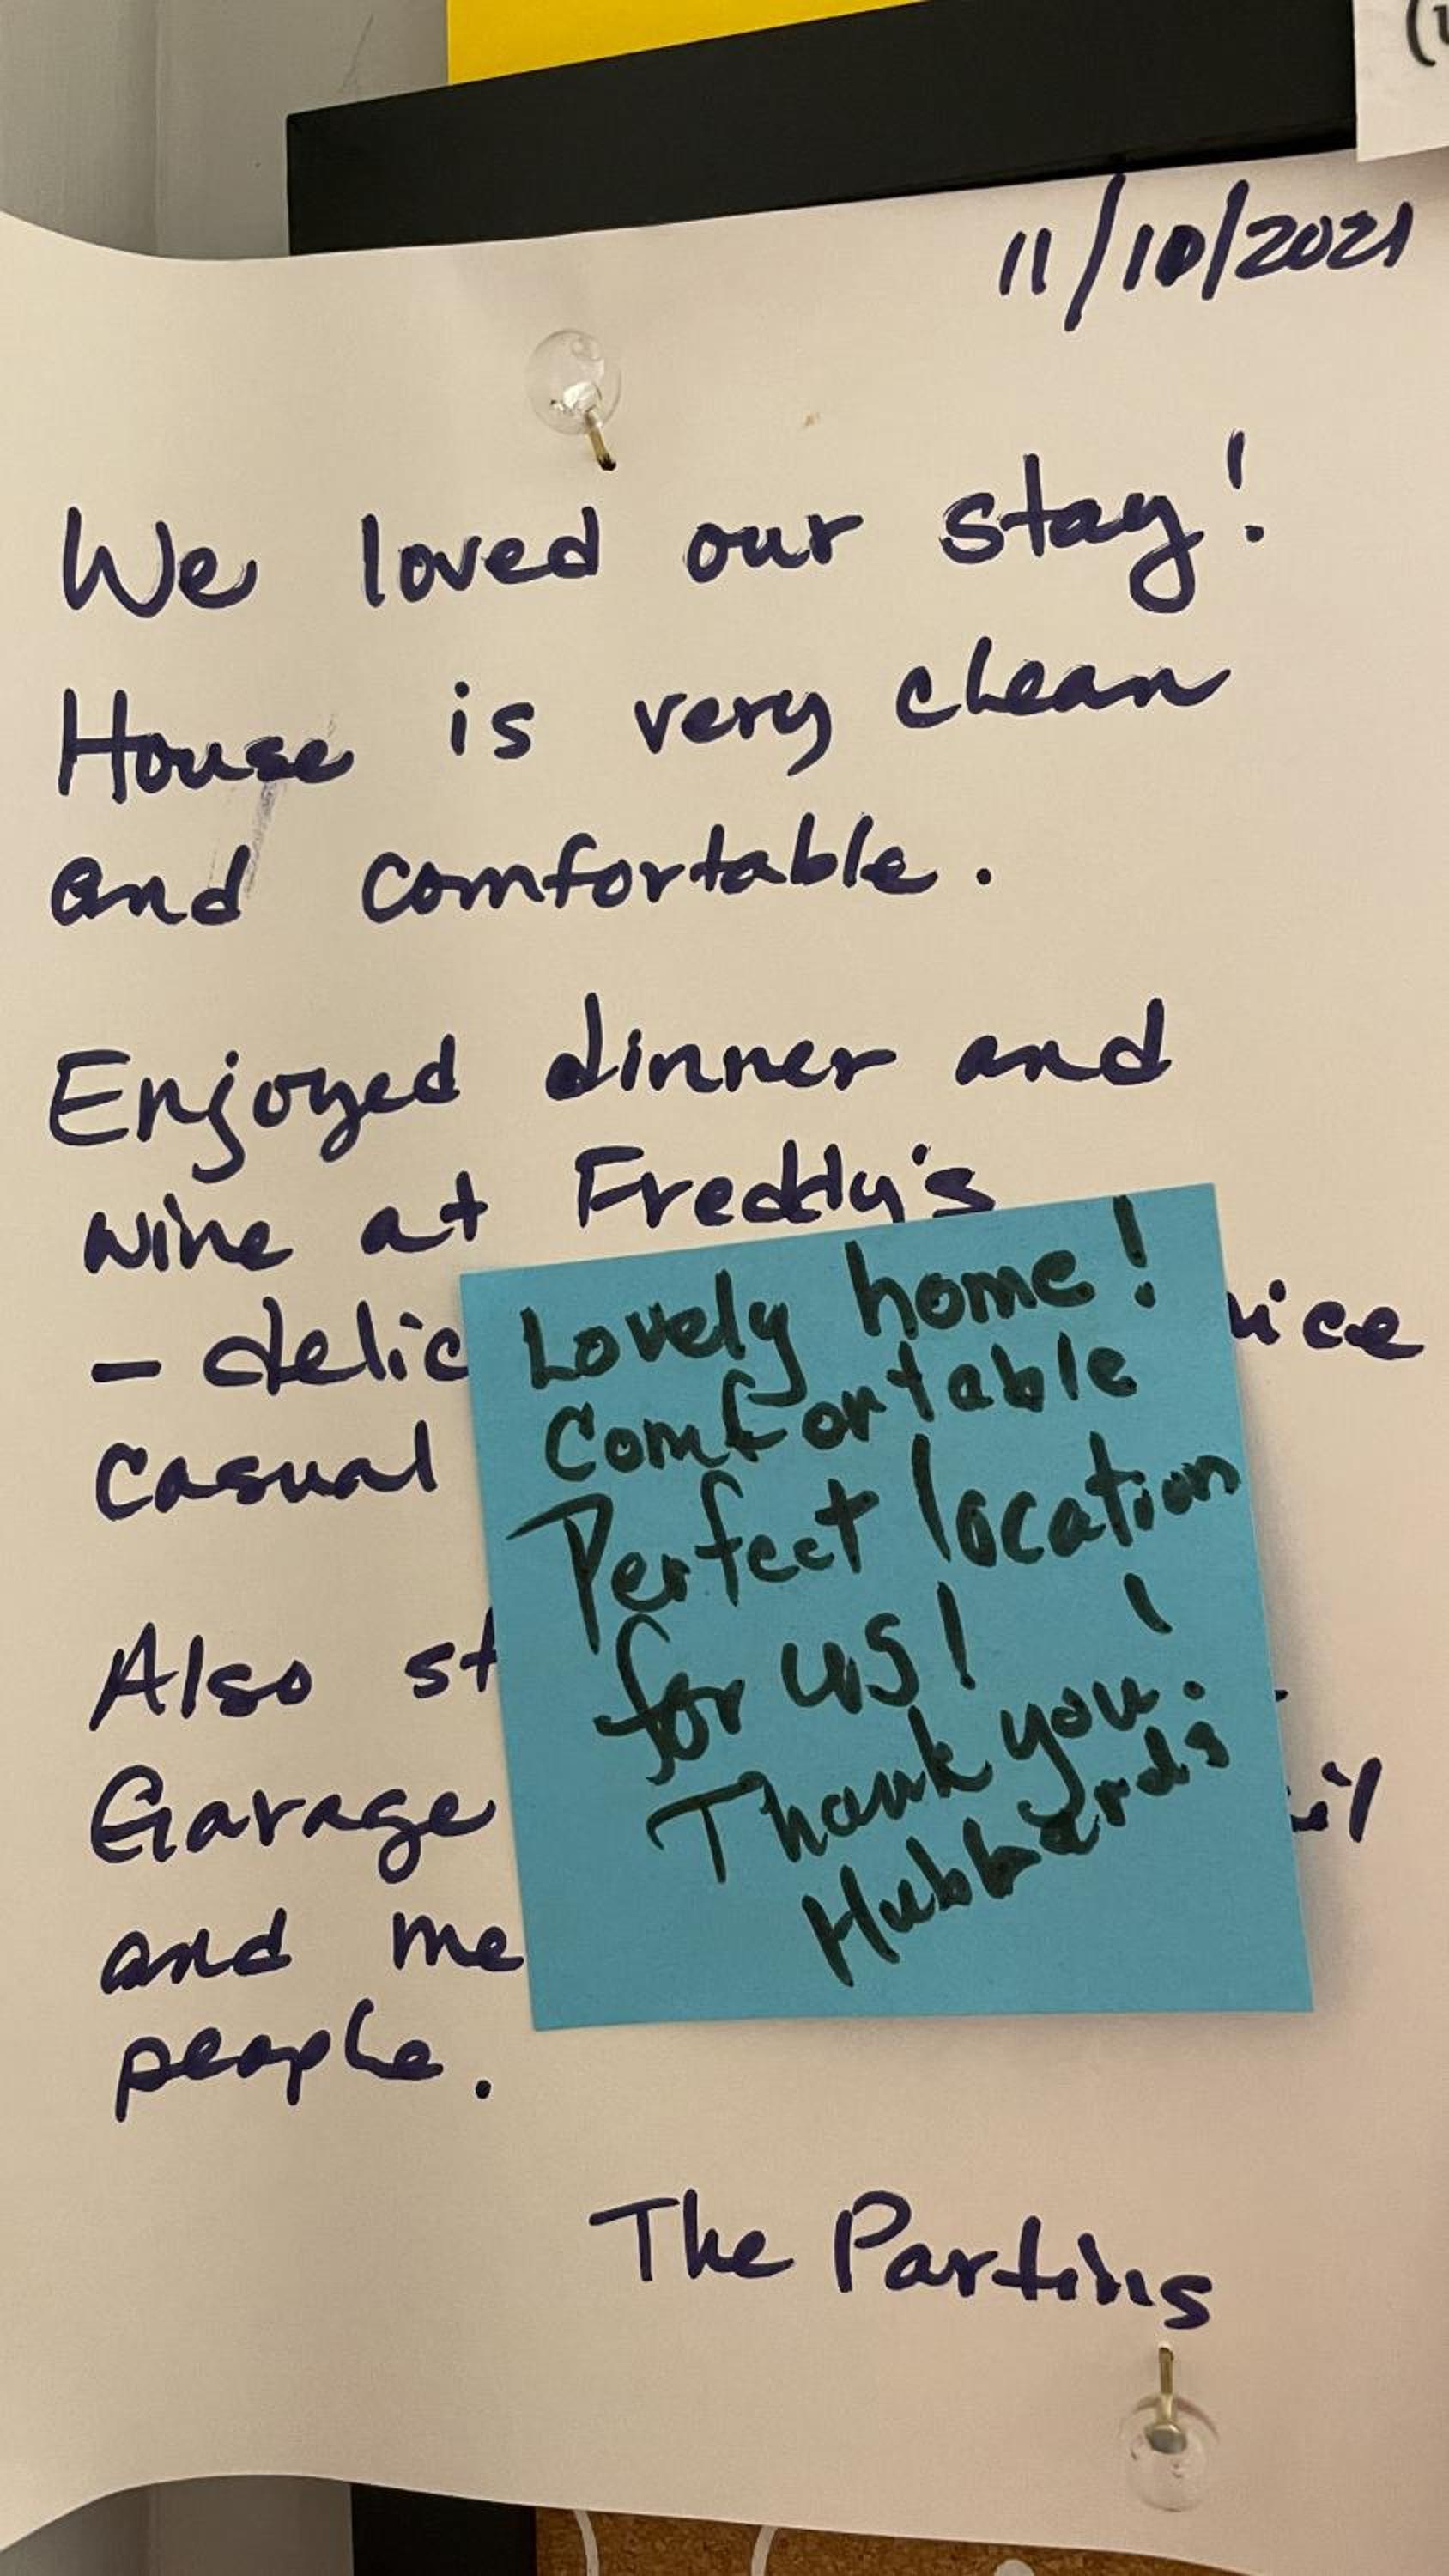 11/10/2021
We loved our stay!
House is very clean
and comfortable.
Enjoyed dinner and
wine at Freddy's
- delic
casual
Also st
Garage
and me
people.
The Partins
Lovely home!
Comfortable
Perfect location
for us!
Thank you!
Hubbards